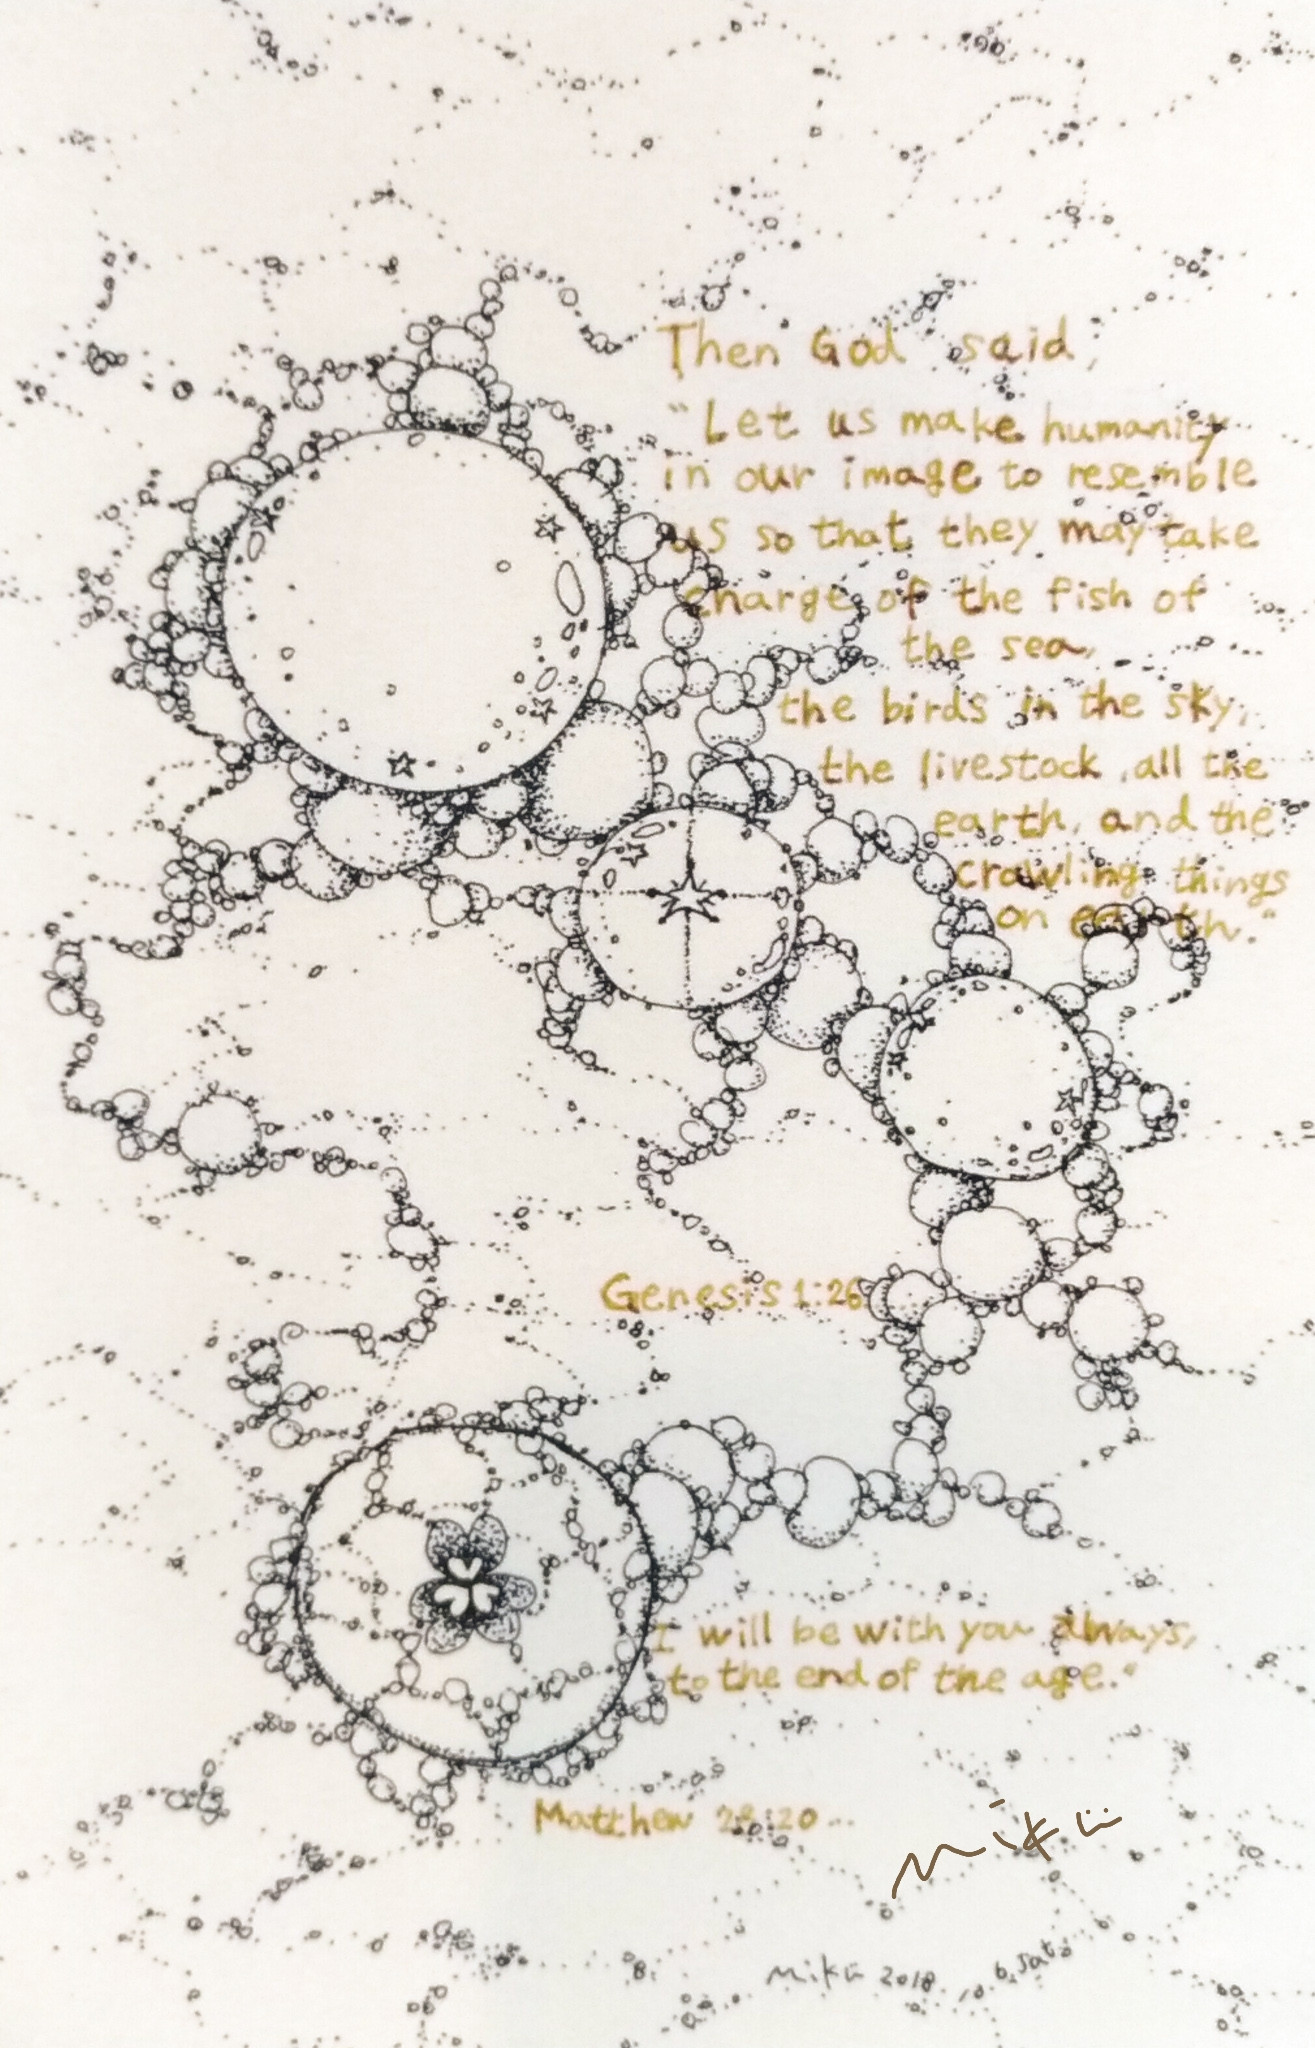 Then God said,
"Let us make humanity
in our image to resemble
us so that they may take
charge of the fish of
the sea,
the birds in the sky,
the livestock, all the
earth, and the
crawling things
on earth."
Genesis 1:26
I will be with you always,
to the end of the age."
Matthew 28:20
Mikii
Mikii 2018. 6. Sat.